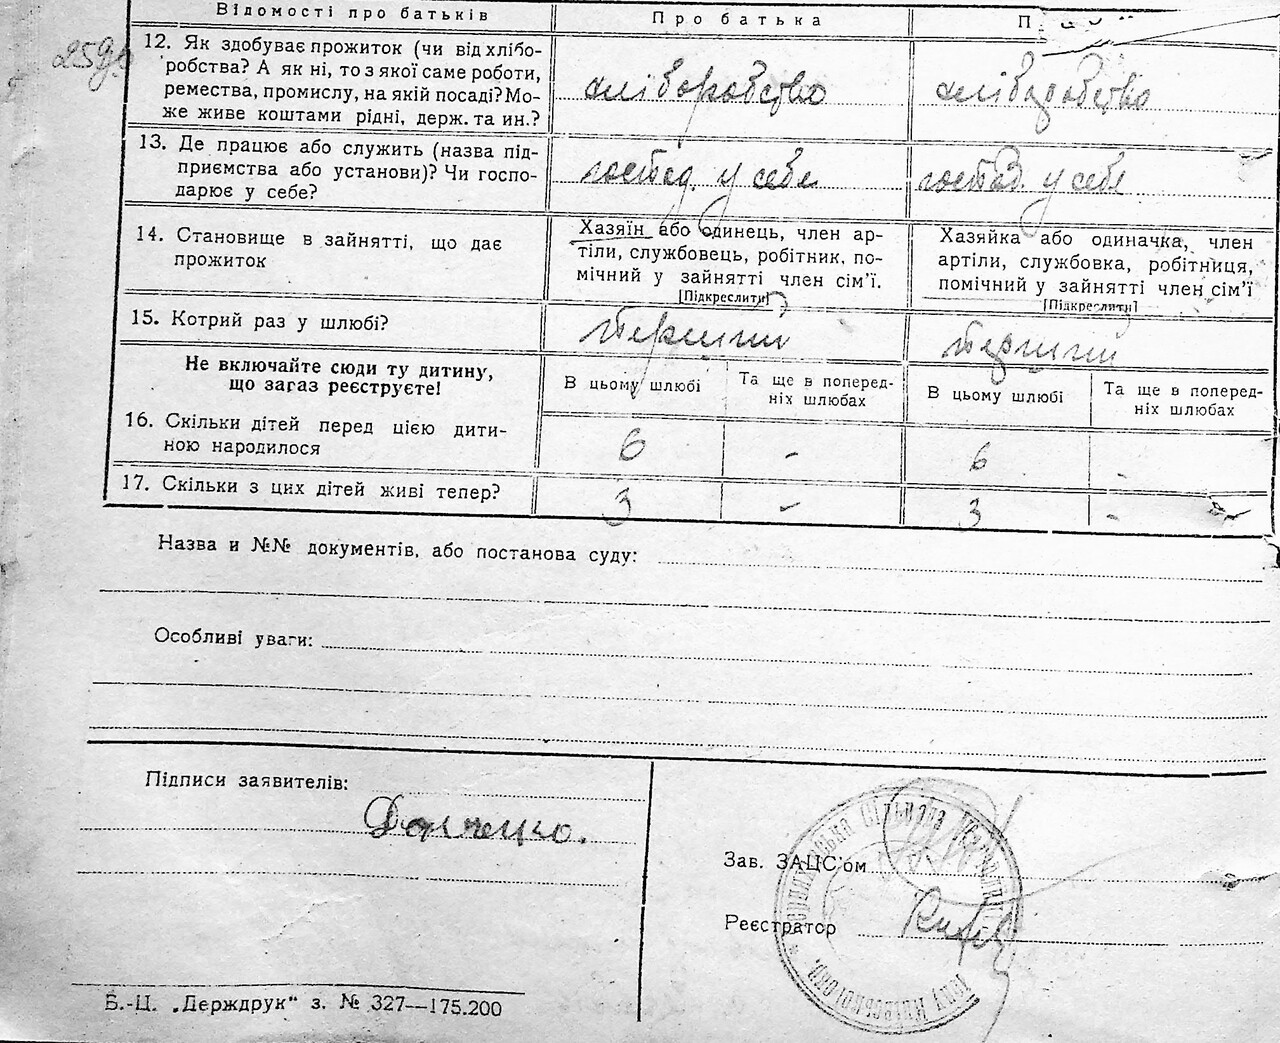 Відомості про батьків
Про батька
П
259
12. Як здобуває прожиток (чи від хлібо-
робства? А як ні, то з якої саме роботи,
ремества, промислу, на якій посаді? Мо-
же живе коштами рідні, держ. та ин.?
хліборобство
хліборобство
13. Де працює або служить (назва під-
приємства або установи)? Чи госпо-
дарює у себе?
господ. у себе
господ. у себе
14. Становище в зайнятті, що дає
прожиток
Хазяїн або одинець, член ар-
тіли, службовець, робітник, по-
мічний у зайнятті член сім'ї.
[Підкреслити]
Хазяйка або одиначка, член
артіли, службовка, робітниця,
помічний у зайнятті член сім'ї
[Підкреслити]
15. Котрий раз у шлюбі?
перший
перший
Не включайте сюди ту дитину,
що загаз реєструєте!
В цьому шлюбі
Та ще в поперед-
ніх шлюбах
В цьому шлюбі
Та ще в поперед-
ніх шлюбах
16. Скільки дітей перед цією дити-
ною народилося
6
-
6
-
17. Скільки з цих дітей живі тепер?
3
-
3
-
Назва и №№ документів, або постанова суду:
Особливі уваги:
Підписи заявителів:
Данченко.
Зав. ЗАЦС'ом
Реєстратор
Б.-Ц. „Держдрук" з. № 327—175.200